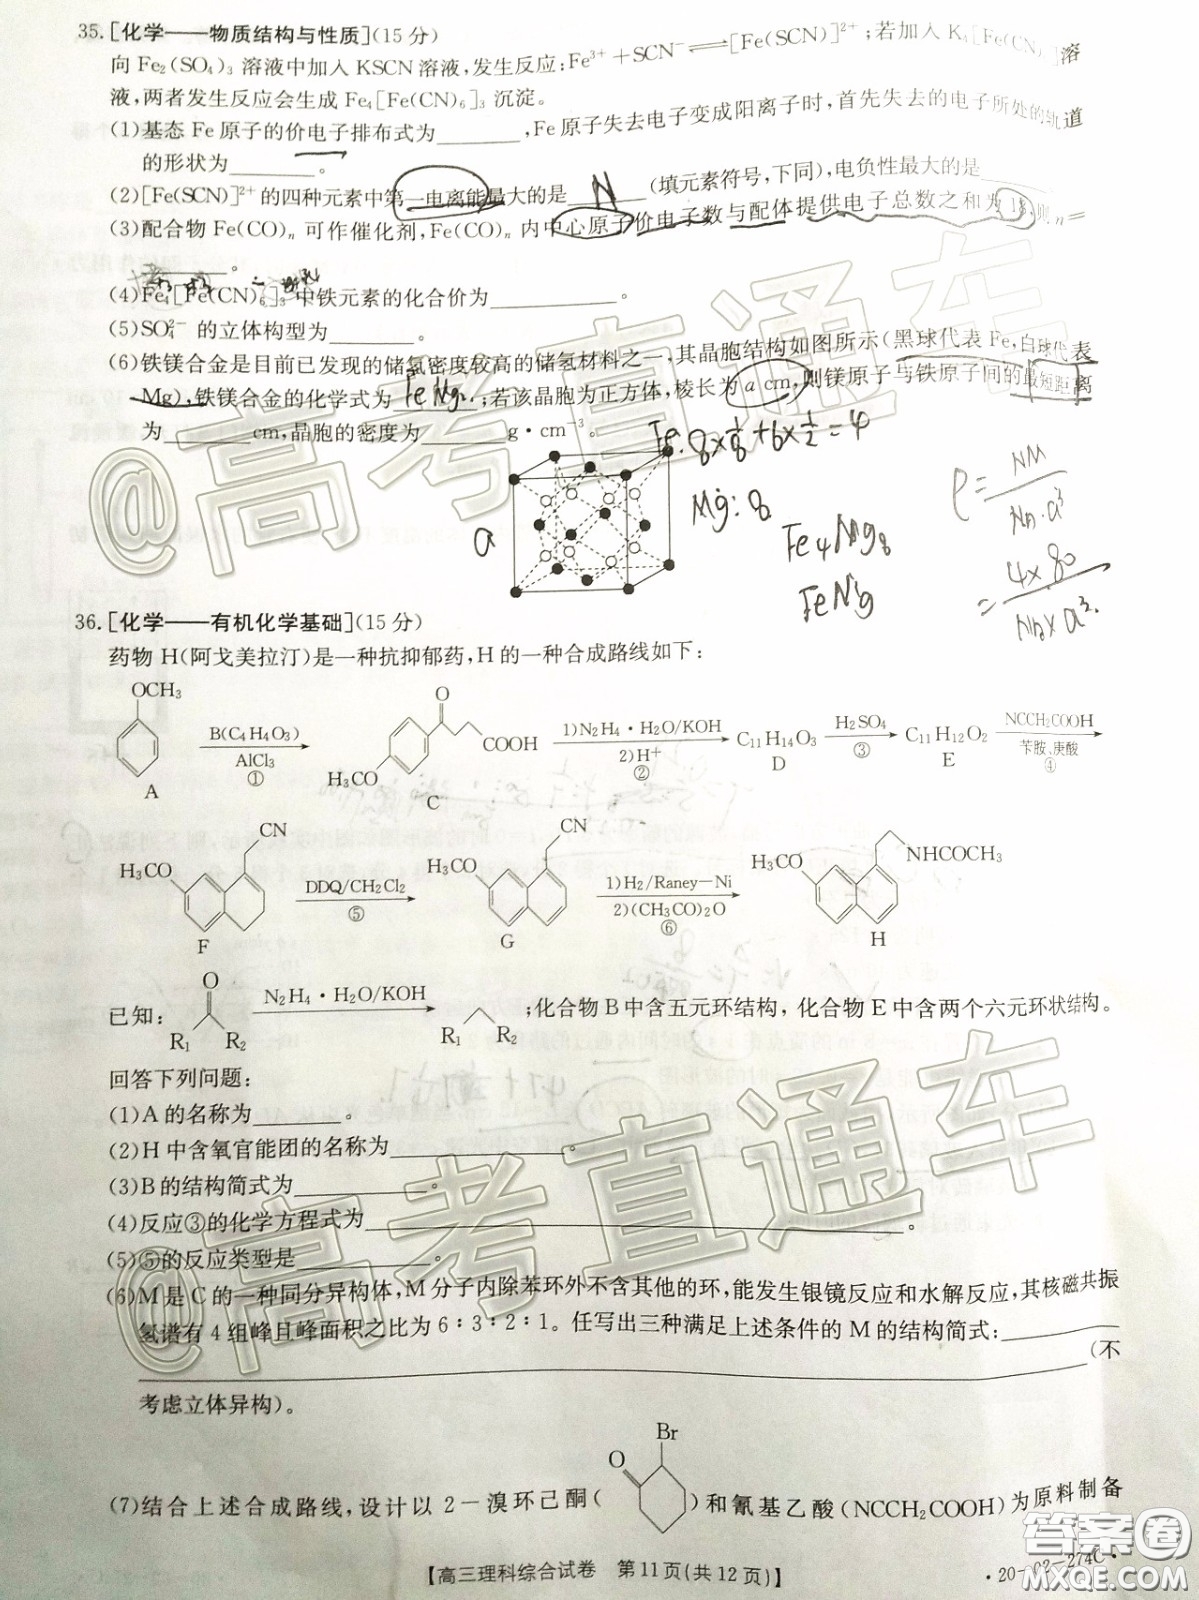 35.[化学——物质结构与性质](15分)
向Fe₂(SO₄)₃溶液中加入KSCN溶液,发生反应:Fe³⁺+SCN⁻⇌[Fe(SCN)]²⁺;若加入K₄[Fe(CN)₆]溶
液,两者发生反应会生成Fe₄[Fe(CN)₆]₃沉淀。
(1)基态Fe原子的价电子排布式为________,Fe原子失去电子变成阳离子时,首先失去的电子所处的轨道
的形状为________。
(2)[Fe(SCN)]²⁺的四种元素中第一电离能最大的是 N (填元素符号,下同),电负性最大的是________
(3)配合物Fe(CO)ₙ可作催化剂,Fe(CO)ₙ内中心原子价电子数与配体提供电子总数之和为18,则n=
________。
(4)Fe₄[Fe(CN)₆]₃中铁元素的化合价为____________。
(5)SO₄²⁻的立体构型为________。
(6)铁镁合金是目前已发现的储氢密度较高的储氢材料之一,其晶胞结构如图所示(黑球代表Fe,白球代表
Mg),铁镁合金的化学式为 FeMg₂ ;若该晶胞为正方体,棱长为a cm,则镁原子与铁原子间的最短距离
为________cm,晶胞的密度为________g·cm⁻³。
Fe:8×1/8+6×1/2=4
Mg:8
Fe₄Mg₈
a
36.[化学——有机化学基础](15分)
药物H(阿戈美拉汀)是一种抗抑郁药,H的一种合成路线如下:
OCH₃
A
B(C₄H₄O₃)
AlCl₃
①
O
COOH
H₃CO
C
1)N₂H₄·H₂O/KOH
2)H⁺
②
C₁₁H₁₄O₃
D
H₂SO₄
③
C₁₁H₁₂O₂
E
NCCH₂COOH
苄胺、庚酸
④
CN
H₃CO
F
DDQ/CH₂Cl₂
⑤
CN
H₃CO
G
1)H₂/Raney—Ni
2)(CH₃CO)₂O
⑥
H₃CO
NHCOCH₃
H
已知:
O
R₁ R₂
N₂H₄·H₂O/KOH
R₁ R₂
;化合物B中含五元环结构,化合物E中含两个六元环状结构。
回答下列问题:
(1)A的名称为________。
(2)H中含氧官能团的名称为________________。
(3)B的结构简式为____________。
(4)反应③的化学方程式为________________________________。
(5)⑤的反应类型是____________。
(6)M是C的一种同分异构体,M分子内除苯环外不含其他的环,能发生银镜反应和水解反应,其核磁共振
氢谱有4组峰且峰面积之比为6:3:2:1。任写出三种满足上述条件的M的结构简式:____________
________________________________(不
考虑立体异构)。
(7)结合上述合成路线,设计以2-溴环己酮(
O
Br
)和氰基乙酸(NCCH₂COOH)为原料制备
【高三理科综合试卷 第11页(共12页)】
·20-02-274C·
@高考直通车
@高考直通车
答案圈
MXQE.COM